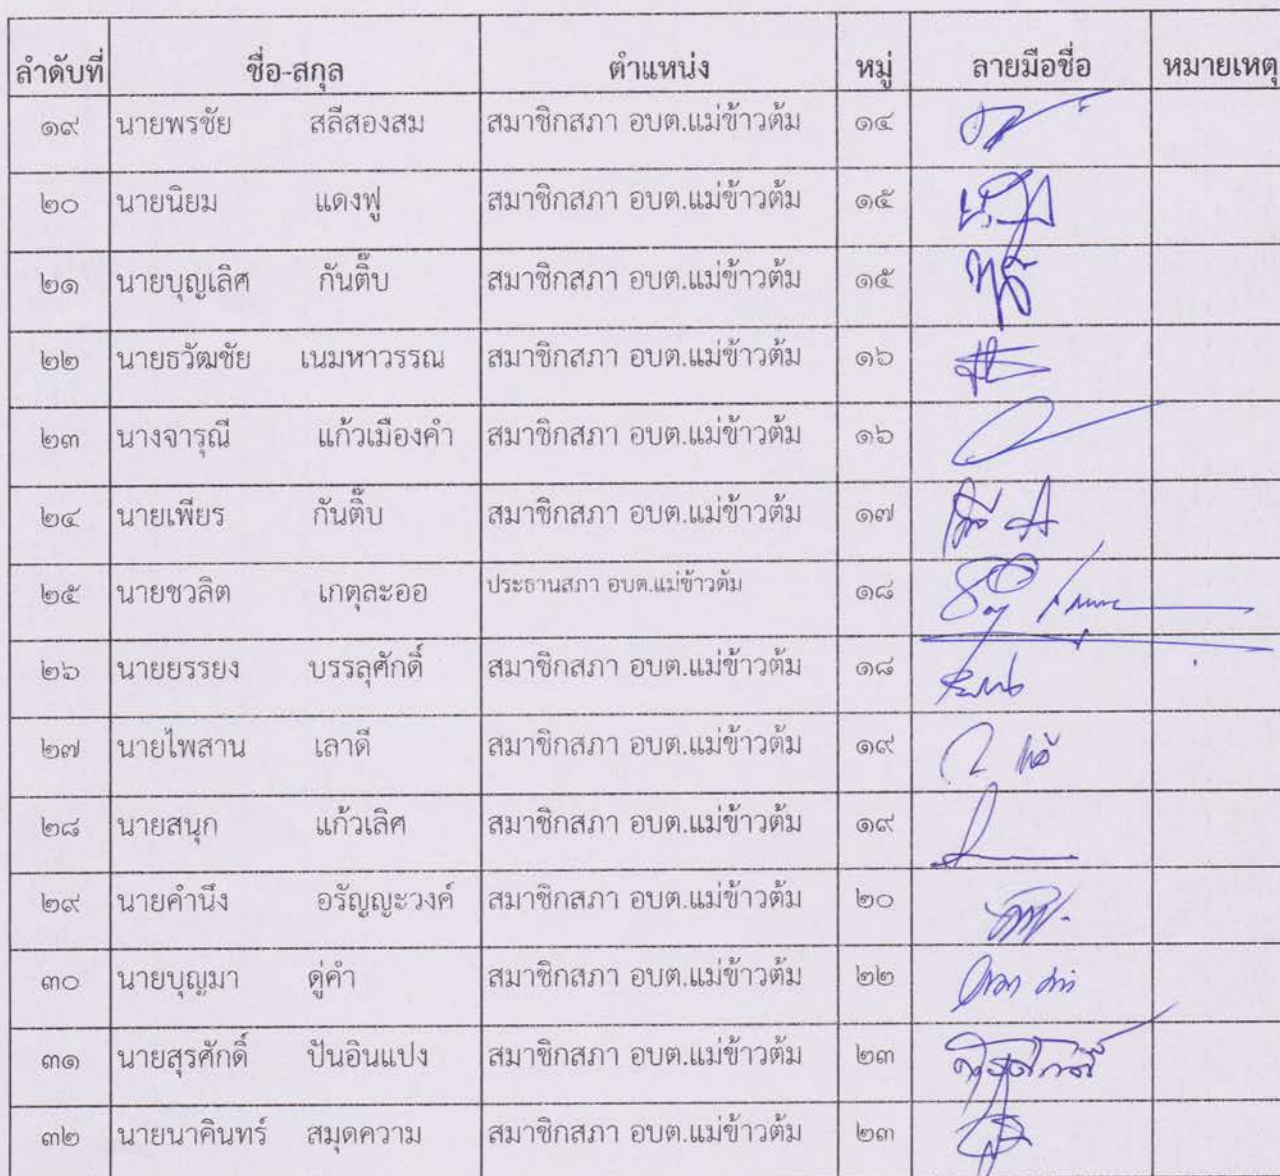 ลำดับที่ ชื่อ-สกุล ตำแหน่ง หมู่ ลายมือชื่อ หมายเหตุ
๑๙ นายพรชัย สลีสองสม สมาชิกสภา อบต.แม่ข้าวต้ม ๑๔
๒๐ นายนิยม แดงฟู สมาชิกสภา อบต.แม่ข้าวต้ม ๑๕
๒๑ นายบุญเลิศ กันติ๊บ สมาชิกสภา อบต.แม่ข้าวต้ม ๑๕
๒๒ นายธวัฒชัย เนมหาวรรณ สมาชิกสภา อบต.แม่ข้าวต้ม ๑๖
๒๓ นางจารุณี แก้วเมืองคำ สมาชิกสภา อบต.แม่ข้าวต้ม ๑๖
๒๔ นายเพียร กันติ๊บ สมาชิกสภา อบต.แม่ข้าวต้ม ๑๗
๒๕ นายชวลิต เกตุละออ ประธานสภา อบต.แม่ข้าวต้ม ๑๘
๒๖ นายยรรยง บรรลุศักดิ์ สมาชิกสภา อบต.แม่ข้าวต้ม ๑๘
๒๗ นายไพสาน เลาดี สมาชิกสภา อบต.แม่ข้าวต้ม ๑๙
๒๘ นายสนุก แก้วเลิศ สมาชิกสภา อบต.แม่ข้าวต้ม ๑๙
๒๙ นายคำนึง อรัญญะวงค์ สมาชิกสภา อบต.แม่ข้าวต้ม ๒๐
๓๐ นายบุญมา ดู่คำ สมาชิกสภา อบต.แม่ข้าวต้ม ๒๒
๓๑ นายสุรศักดิ์ ปันอินแปง สมาชิกสภา อบต.แม่ข้าวต้ม ๒๓
๓๒ นายนาคินทร์ สมุดความ สมาชิกสภา อบต.แม่ข้าวต้ม ๒๓